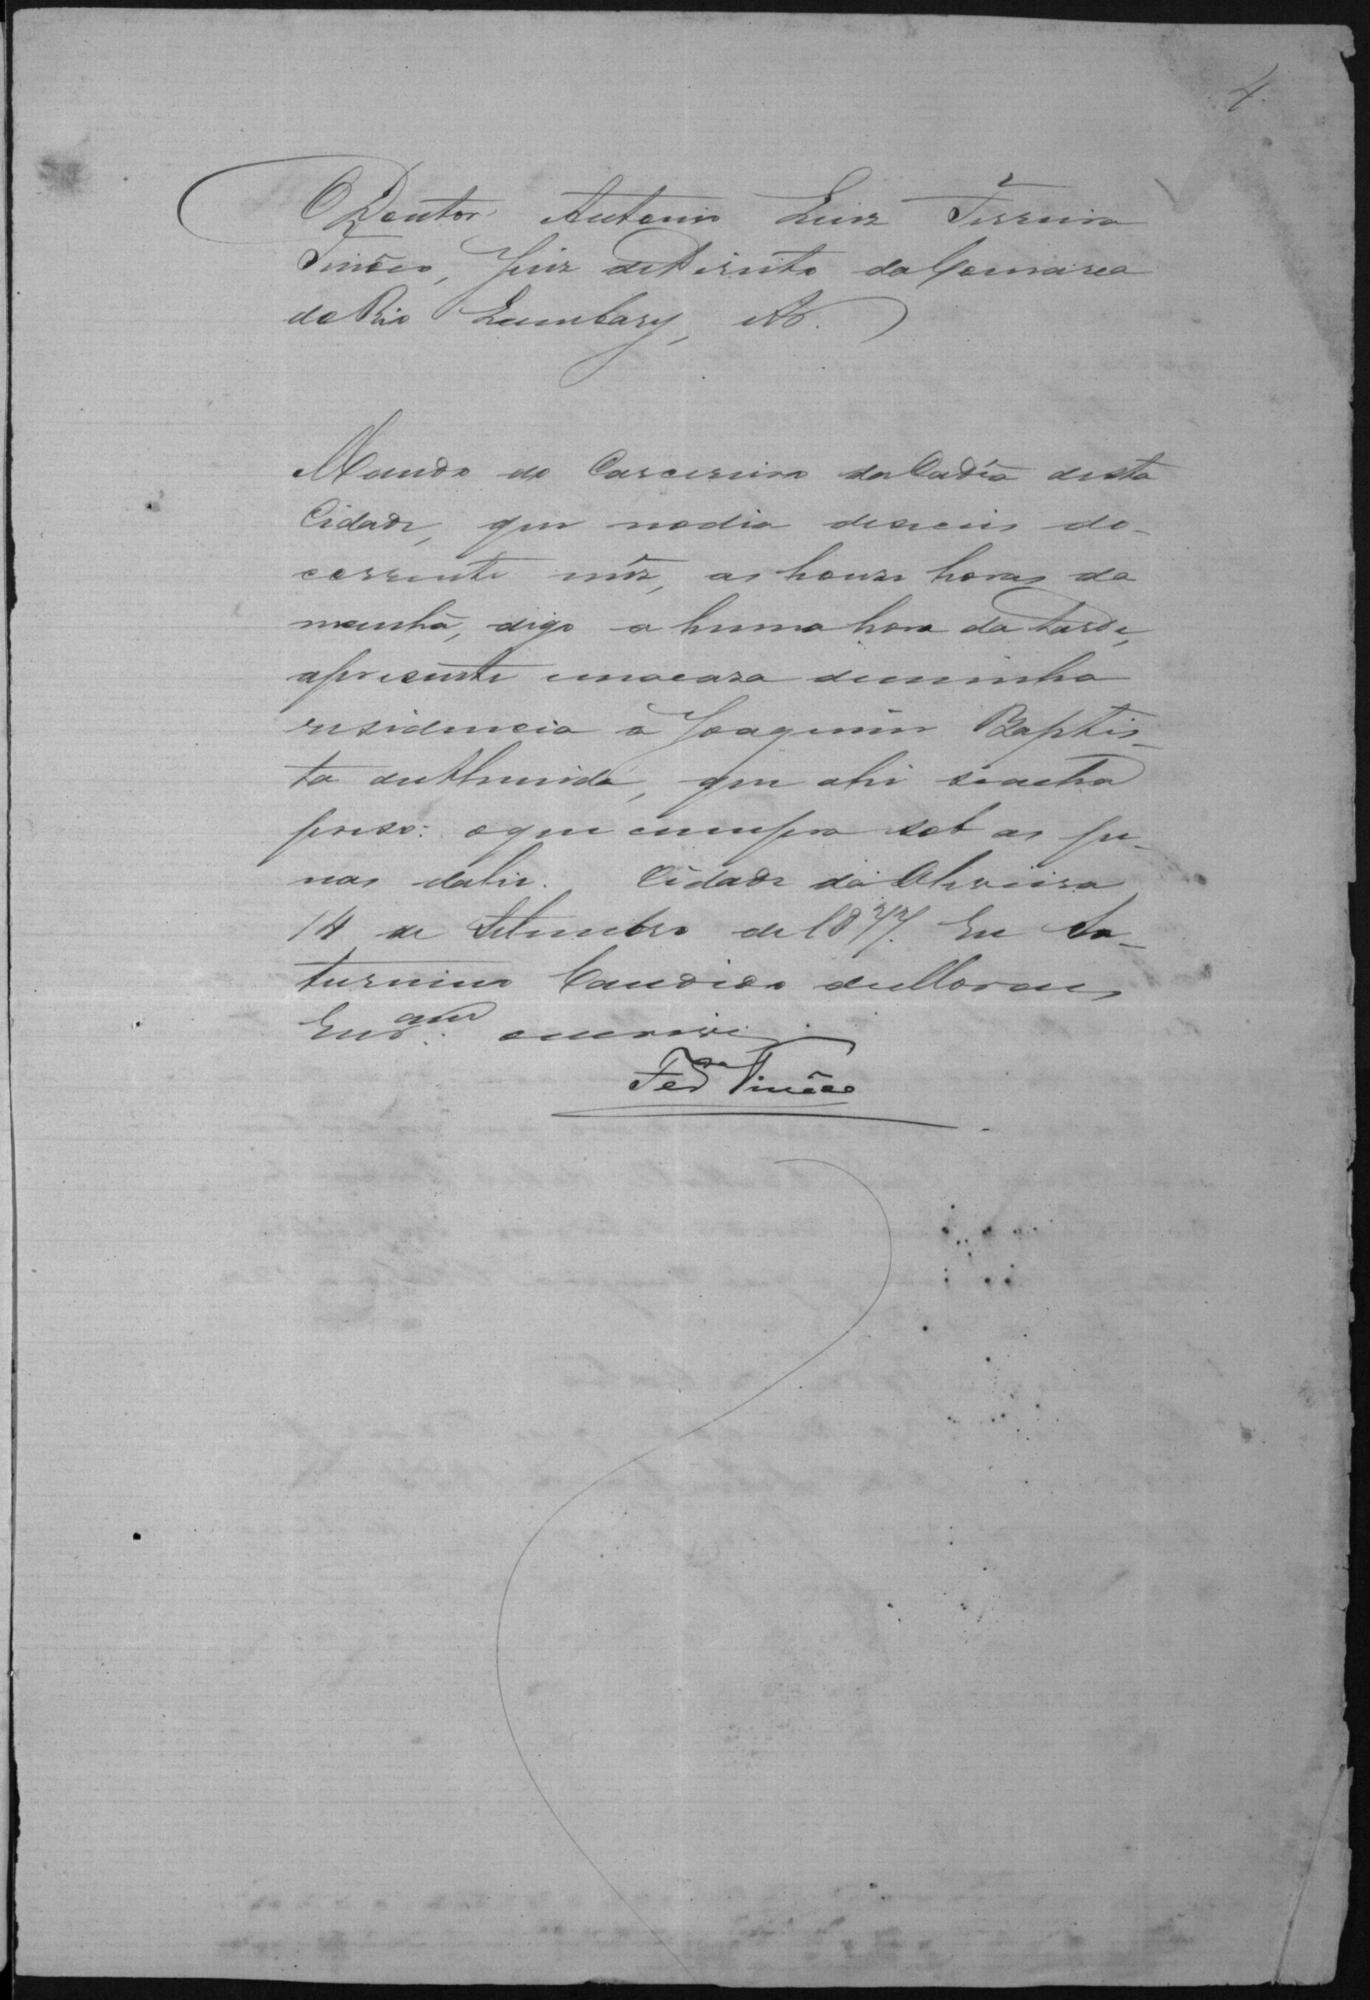 4.
O Doutor Antonio Luiz Ferreira
Tinôco, Juiz de Direito da Comarca
do Rio Lambary, etc.
Mando ao Carcereiro da Cadêa desta
Cidade, que no dia deseceis do
corrente mêz, as honze horas da
manhã, digo a huma hora da tarde,
apresente em a caza de minha
residencia a Joaquim Baptis-
ta de Almeida, que ahi se acha
preso: o que cumpra sob as pe-
nas da lei. Cidade da Oliveira
14 de Setembro de 1877. Eu Sa-
turnino Candido de Moraes
escrevi
Ferra Tinôco